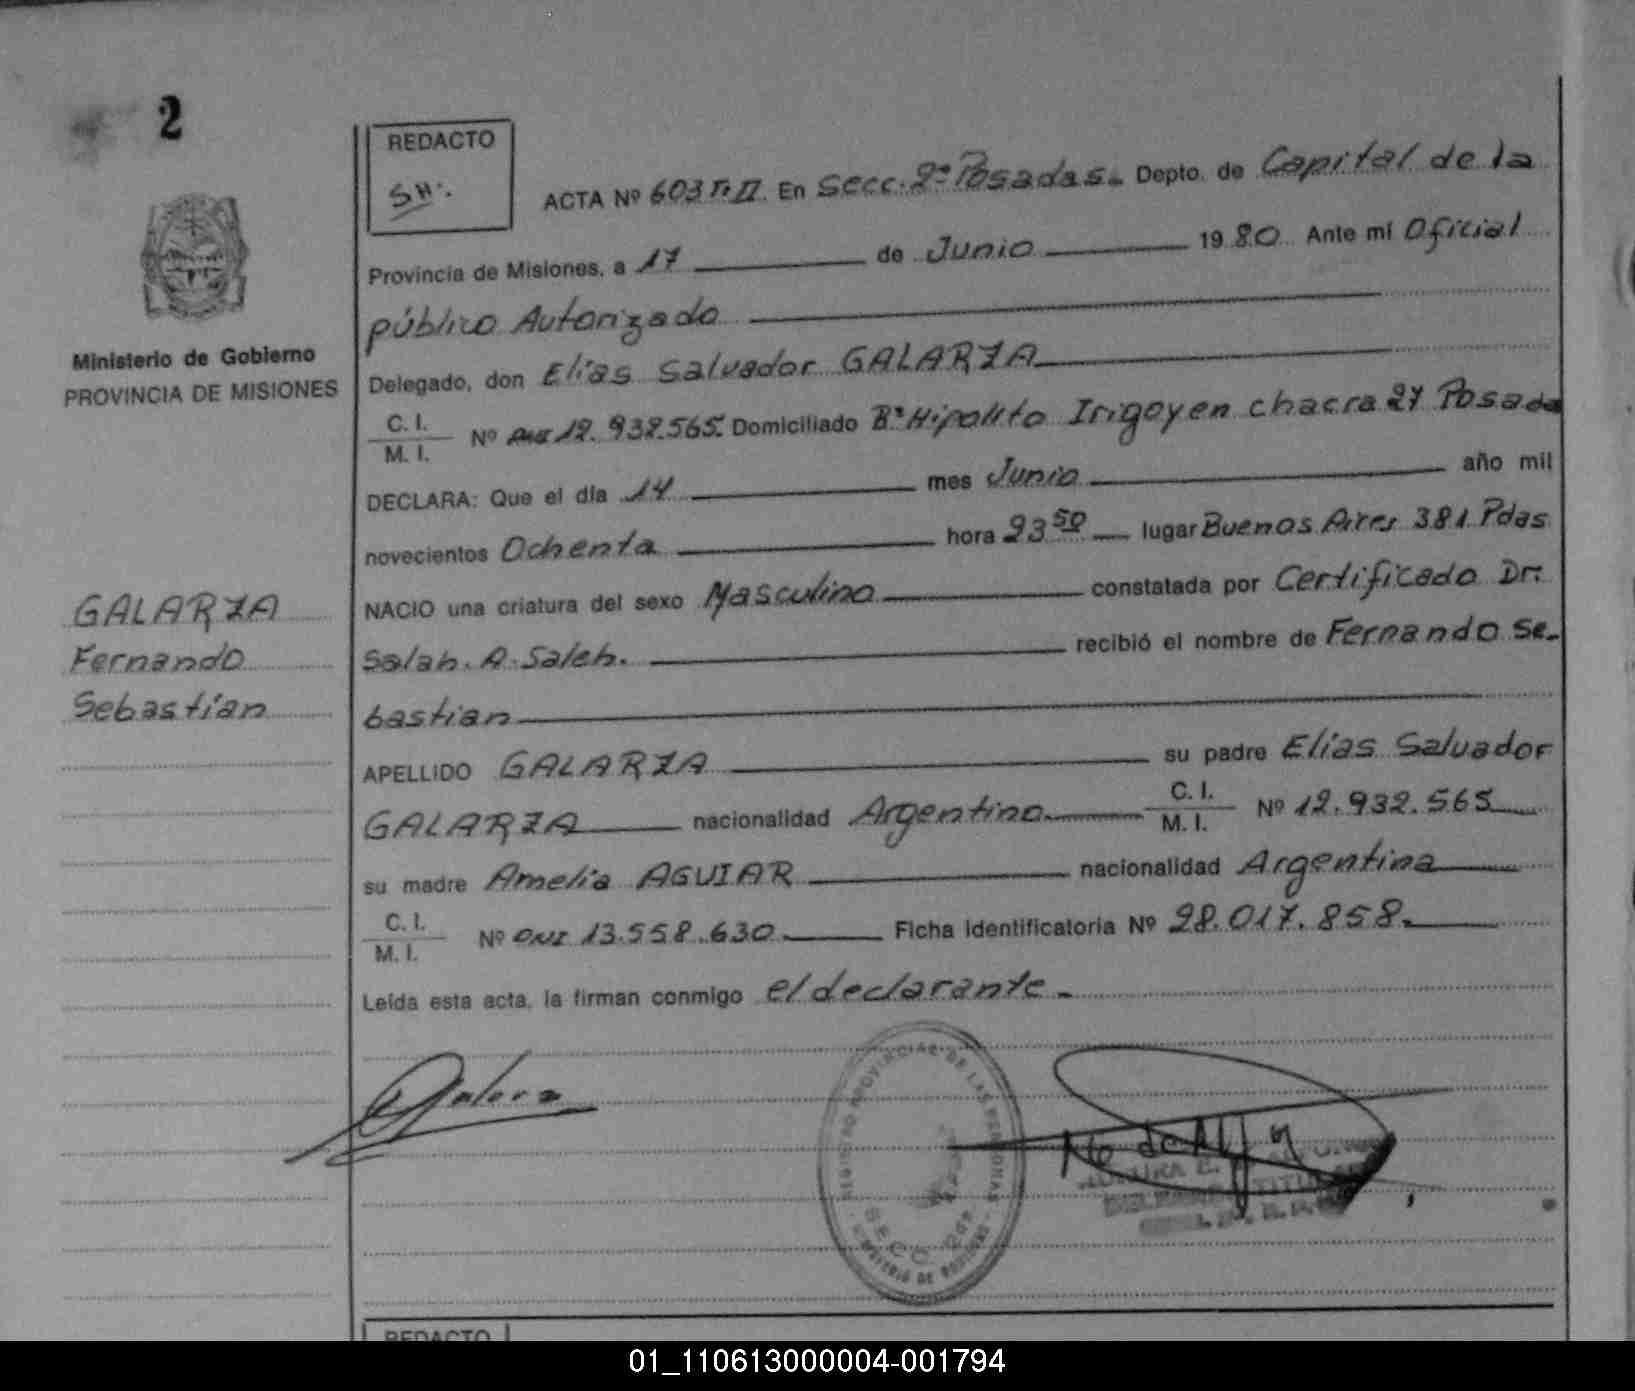 2
REDACTO
SH:.
ACTA Nº 603 T. II. En Secc. 2ª Posadas. Depto. de Capital de la
Provincia de Misiones, a 17 de Junio 1980 Ante mí Oficial
público Autorizado
Delegado, don Elias Salvador GALARZA
C. I.
M. I. Nº DNI 12.932.565. Domiciliado Bº Hipolito Irigoyen chacra 27 Posadas
DECLARA: Que el día 14 mes Junio año mil
novecientos Ochenta hora 23 50 lugar Buenos Aires 381 Pdas
NACIO una criatura del sexo Masculino constatada por Certificado Dr:
Salah. A. Saleh. recibió el nombre de Fernando Se-
bastian
APELLIDO GALARZA su padre Elias Salvador
GALARZA nacionalidad Argentino C. I.
M. I. Nº 12.932.565
su madre Amelia AGUIAR nacionalidad Argentina
C. I.
M. I. Nº DNI 13.558.630 Ficha identificatoria Nº 28.017.858.
Leída esta acta, la firman conmigo el declarante.
Ministerio de Gobierno
PROVINCIA DE MISIONES
GALARZA
Fernando
Sebastian
REGISTRO PROVINCIAL DE LAS PERSONAS
SECC. 2da
REDACTO
01_110613000004-001794